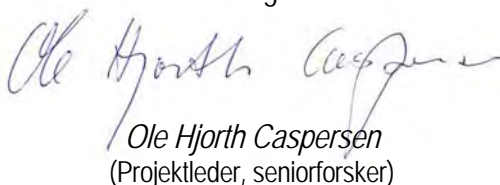 Ole Hjorth Caspersen
Ole Hjorth Caspersen
(Projektleder, seniorforsker)